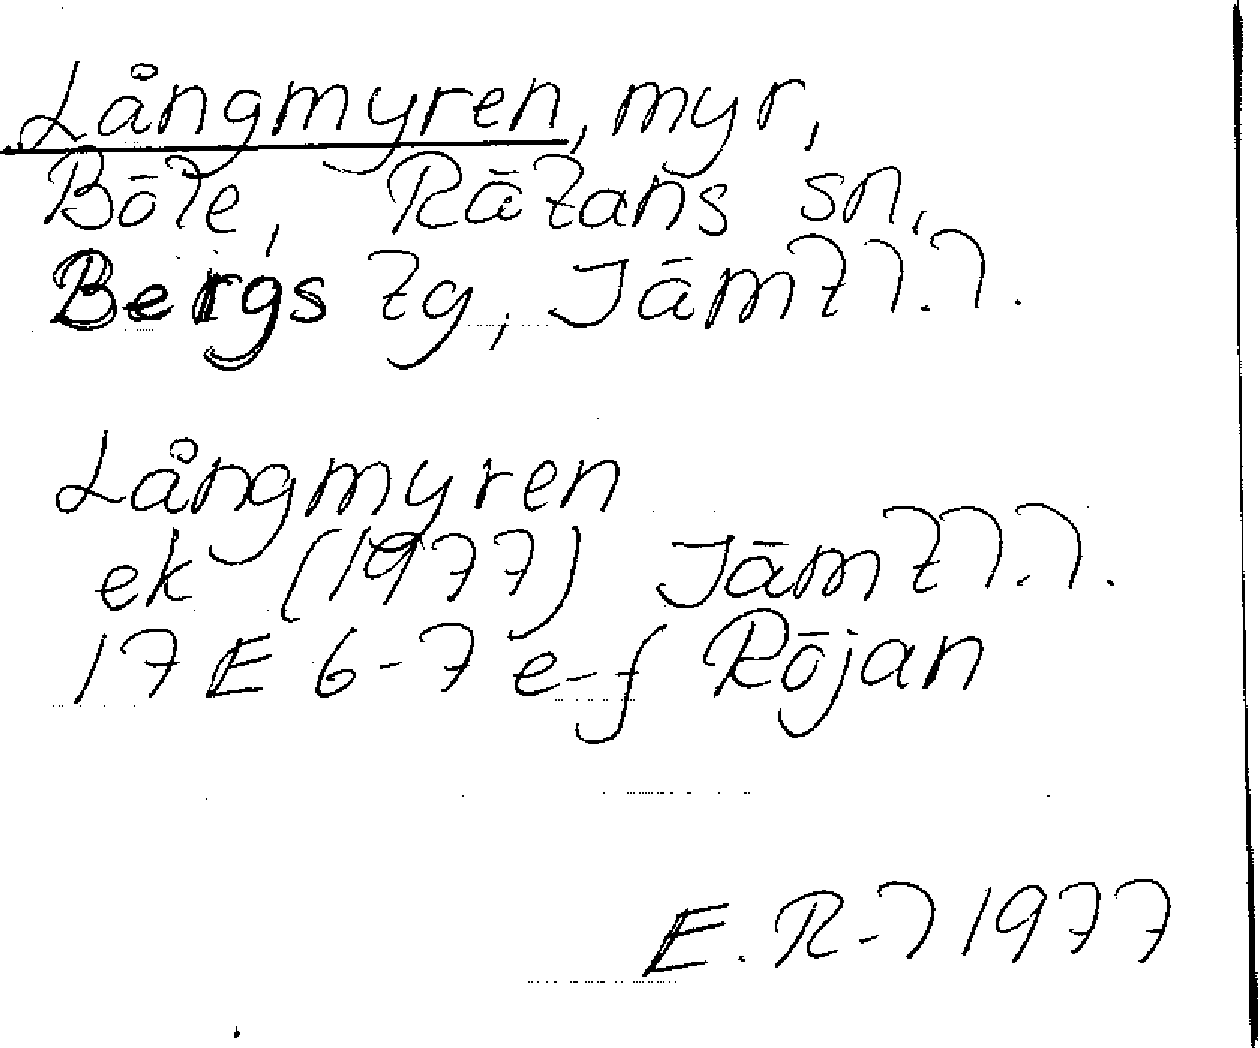 Långmyren, myr,
Böle, Rätans sn,
Bergs tg, Jämtl.l.
Långmyren
ek (1977) Jämtl.l.
17 E 6-7 e-f Röjan
E.R-l 1977